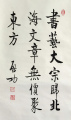 書藝大宗歸北
海文章無價聚
東方 启功